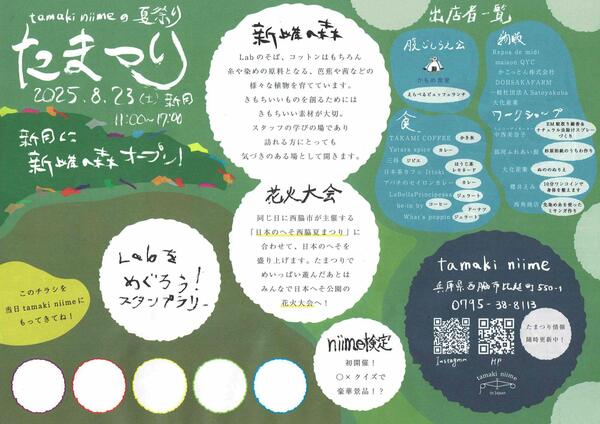 tamaki niimeの夏祭り
たまつり
2025.8.23(土)新月
11:00~17:00
新月に
新雌の森オープン!
新雌の森
Labのそば、コットンはもちろん
糸や染めの原料となる、芭蕉や茜などの
様々な植物を育てています。
きもちいいものを創るためには
きもちいい素材が大切。
スタッフの学びの場であり
訪れる方にとっても
気づきのある場として開きます。
花火大会
同じ日に西脇市が主催する
「日本のへそ西脇夏まつり」に
合わせて、日本のへそを
盛り上げます。たまつりで
めいっぱい遊んだあとは
みんなで日本へそ公園の
花火大会へ!
Labを
めぐろう!
スタンプラリー
このチラシを
当日tamaki niimeに
もってきてね!
niime検定
初開催!
〇×クイズで
豪華景品!?
出店者一覧
腹ごしらえ会
かもめ食堂
えらべるビュッフェランチ
食
TAKAMI COFFEE かき氷
Yatara spice カレー
三科 ジビエ
日本茶カフェ Ittoki ほうじ茶レモネード
アパチのセイロンカレー カレー
LaBellaPrincipessa ジェラート
be:in by コーヒー ドーナツ
What's poppin ジェラート
物販
Repos de midi
maison QYC
かこっとん株式会社
DORSAKAFARM
一般社団法人 Satoyakuba
大化産業
ワークショップ
中西美砂子
EM蚊取り線香&
ナチュラル虫除けスプレー
づくり
杉原和紙のうちわ作り
大化産業 ぬのぬりえ
櫻井えみ
10分ワンコインで
身体を整えます
西角商店
先染め糸を使った
ミサンガ作り
tamaki niime
兵庫県西脇市比延町550-1
0795-38-8113
Instagram
HP
たまつり情報
随時更新中!
tamaki niime
in Japan